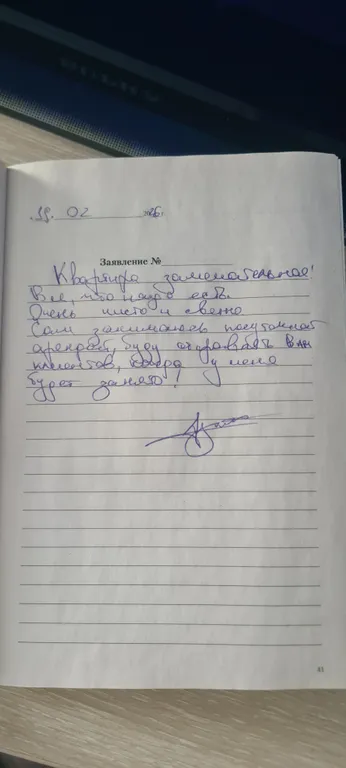 19. 02 26г.
Заявление №
Квартира замечательная!
Все, что надо есть.
Очень чисто и свежо
Сам занимаюсь посуточной
арендой, буду отправлять Вам
клиентов, когда у меня
будет занято!
41